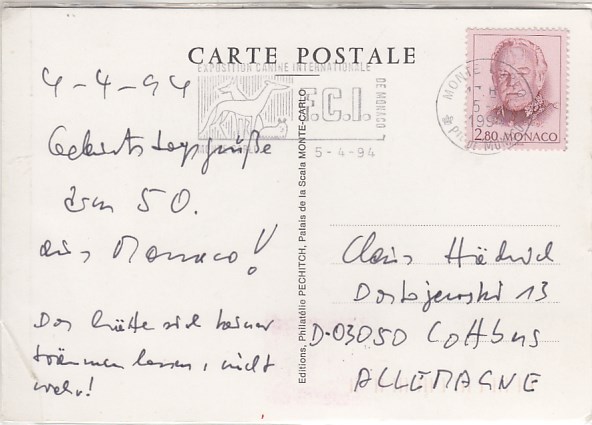 CARTE POSTALE
4-4-94
Geburtstagsgrüße
zum 50.
aus Monaco!
Das hätte sich keiner
träumen lassen, nicht
wahr!
EXPOSITION CANINE INTERNATIONALE
DE MONACO
F.C.I.
5-4-94
MONTE
1994
2,80 MONACO
Editions, Philatélie PECHITCH, Palais de la Scala MONTE-CARLO
Claus Hädrich
Dostojewski 13
D-03050 Cottbus
ALLEMAGNE